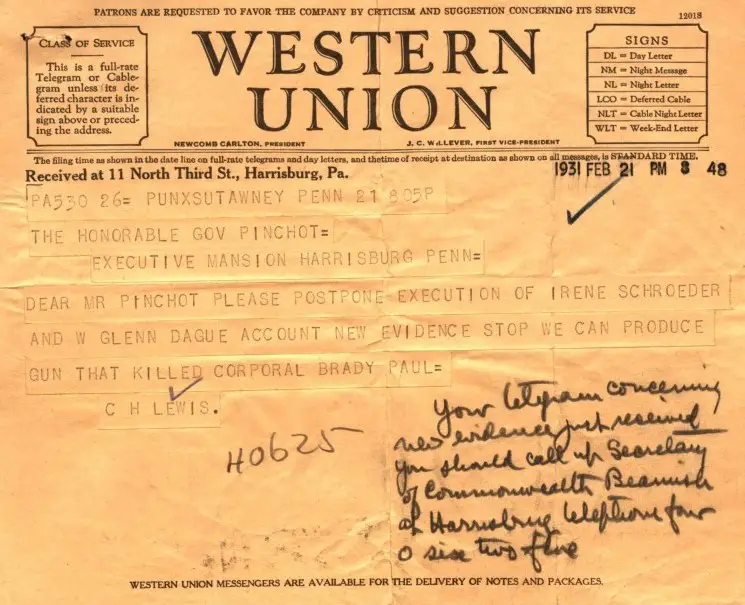 PATRONS ARE REQUESTED TO FAVOR THE COMPANY BY CRTICISM AND SUGGESTION CONCERNING ITS SERVICE
1201S
CLASS OF SERVICE
This is a full-rate
Telegram or Cable-
gram unless its de-
ferred character is in-
dicated by a suitable
sign above or preced-
ing the address.
WESTERN
UNION
NEWCOMB CARLTON, PRESIDENT
J. C. WILLEVER, FIRST VICE-PRESIDENT
SIGNS
DL = Day Letter
NM = Night Message
NL = Night Letter
LCO = Deferred Cable
NLT = Cable Night Letter
WLT = Week-End Letter
The filing time as shown in the date line on full-rate telegrams and day letters, and thetime of receipt at destination as shown on all messages, is STANDARD TIME.
Received at 11 North Third St., Harrisburg, Pa.
1931 FEB 21 PM 8 48
PA530 26= PUNXSUTAWNEY PENN 21 805P
THE HONORABLE GOV PINCHOT=
EXECUTIVE MANSION HARRISBURG PENN=
DEAR MR PINCHOT PLEASE POSTPONE EXECUTION OF IRENE SCHROEDER
AND W GLENN DAGUE ACCOUNT NEW EVIDENCE STOP WE CAN PRODUCE
GUN THAT KILLED CORPORAL BRADY PAUL=
C H LEWIS.
H0625
Your telegram concerning
new evidence just received
you should call up Secretary
of Commonwealth Beamish
at Harrisburg telephone four
0 six two five
WESTERN UNION MESSENGERS ARE AVAILABLE FOR THE DELIVERY OF NOTES AND PACKAGES.